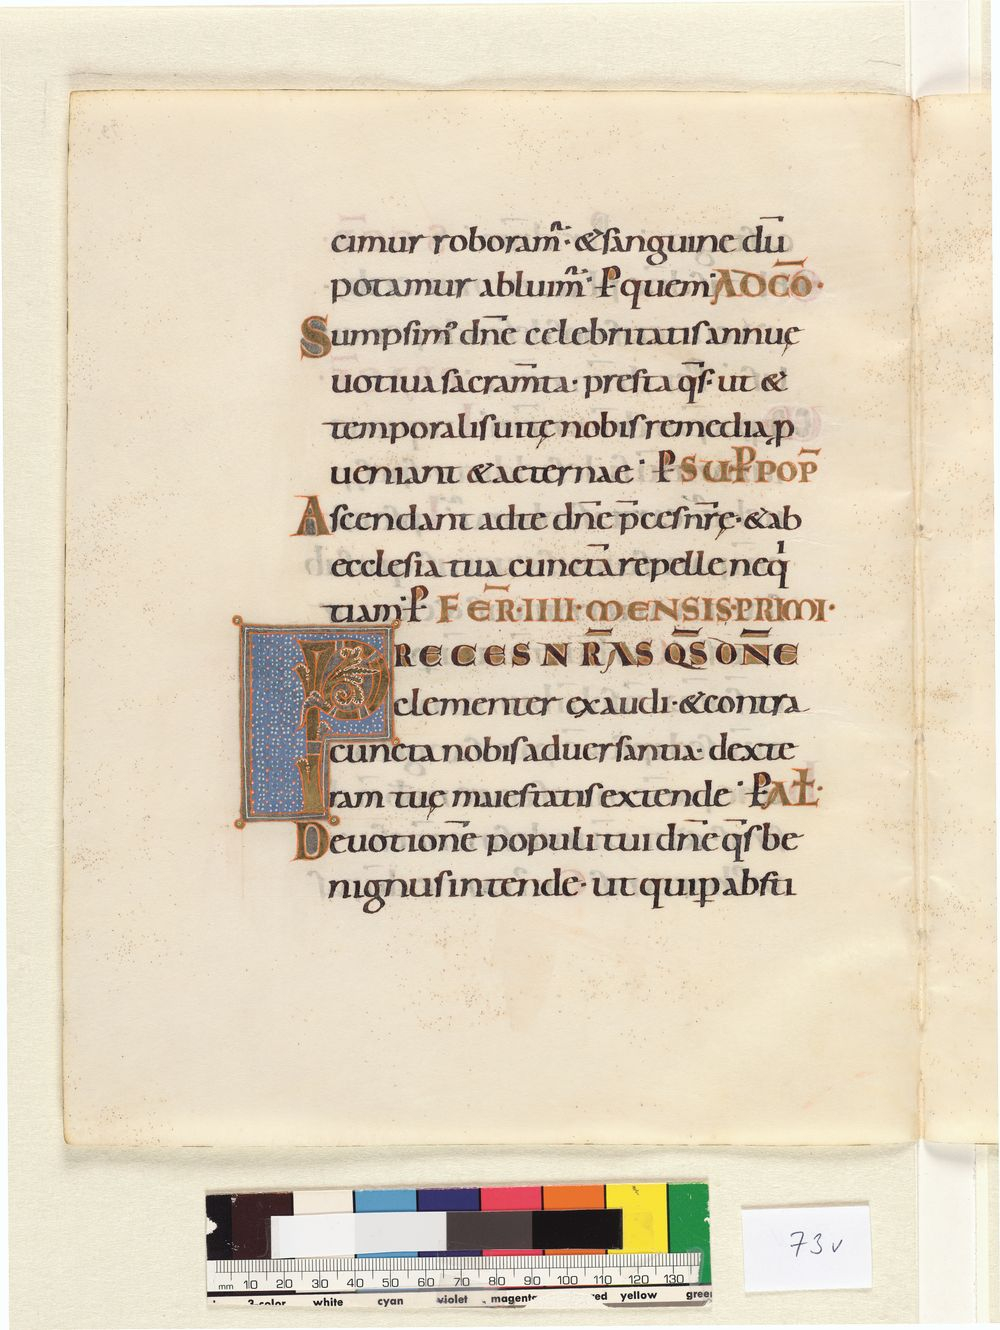 cimur roboram̄· &sanguine dū
potamur abluim̄· ꝑ quem· AD CŌ·
Sumpsim' dn̄e celebritatis annuę
uotiua sacram̄ta· presta qs̄· ut &
temporalis uitę nobis remedia p̱
ueniant &aeternae· ꝑ SUꝑ POP̄
Ascendant adte dn̄e p̄ces nr̄ę· &ab
ecclesia tua cunctā repelle neq
tiam· ꝑ FER̄· IIII· MENSIS· PRIMI·
PRECES NR̄AS QS̄ DN̄E
clementer exaudi· &contra
cuncta nobis aduersantia· dexte
ram tuę maiestatis extende· ꝑ AL̄·
Deuotionē populi tui dn̄e qs̄ be
nignus intende· ut qui ꝑ absti
73 v
mm 10 20 30 40 50 60 70 80 90 100 110 120 130
3-color white cyan violet magenta red yellow green